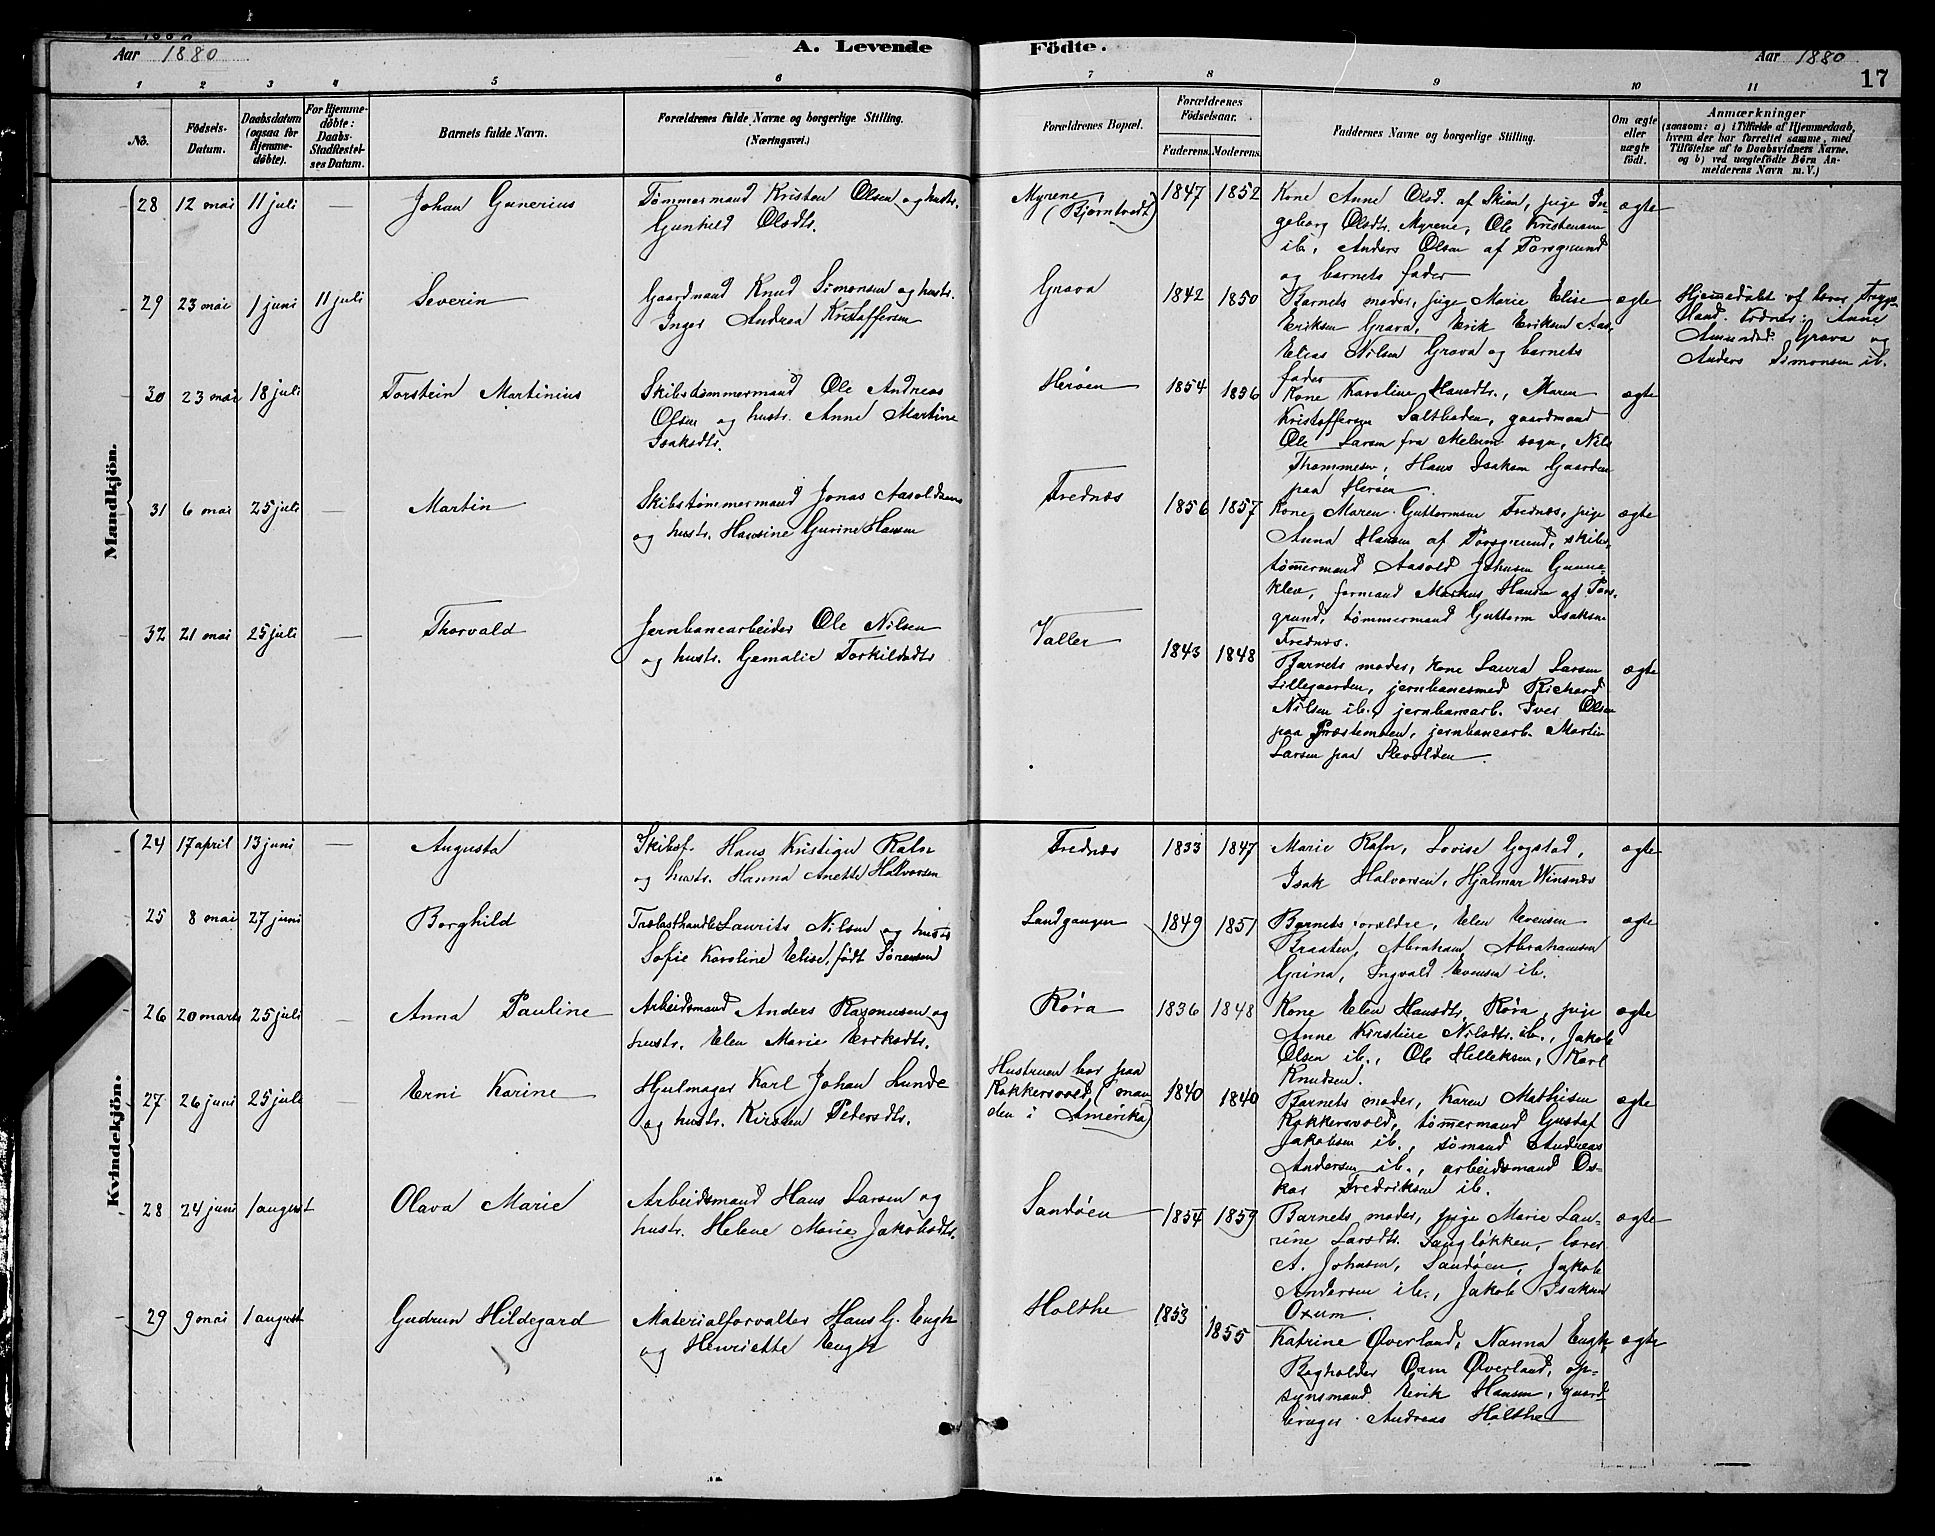 Aar 1880
A. Levende
Födte.
Aar 1880
17
1 2 3 4 5 6 7 8 9 10 11
No.
Födsels-Datum.
Daabsdatum (ogsaa for Hjemme-döbte).
For Hjemme-döbte: Daabs-Stadfæstel-ses Datum.
Barnets fulde Navn.
Forældrenes fulde Navne og borgerlige Stilling.
(Næringsvei.)
Forældrenes Bopæl.
Forældrenes Födselsaar.
Faderens. Moderens.
Faddernes Navne og borgerlige Stilling.
Om ægte eller uægte födt.
Anmærkninger
(saasom: a) i Tilfælde af Hjemmedaab,
hvem der har forrettet samme, med
Tilföielse af to Daabsvidners Navne.
og b) ved uægtefödte Börn An-
melderens Navn m. V.)
Mandkjön.
28 12 mai 11 juli — Johan Gunerius
Tømmermand Kristen Olsen og hustr.
Gunhild Olsdtr.
Myrene
(Bjørntvedt)
1847 1852
Kone Anne Olsd. af Skien, pige In-
geborg Olsdtr. Myrene, Ole Kristensen
ib., Anders Olsen af Porsgrund
og barnets fader
ægte
29 23 mai 1 juni 11 juli Severin
Gaardmand Knud Simonsen og hustr.
Inger Andrea Kristoffersen
Grava
1842 1850
Barnets moder, pige Marie Elise
Eriksen Grava, Erik Eriksen Aas,
Elias Nilsen Grava og barnets
fader
ægte
Hjemmedøbt af lærer
Anne
Amundsd. Grava og
Anders Simonsen ib.
30 23 mai 18 juli Torstein Martinius
Skibstømmermand Ole Andreas
Olsen og hustr. Anne Martine
Isaksdtr.
Herøen
1854 1856
Kone Karoline Hansdtr., Maren
Kristoffersen Saltboden, gaardmand
Ole Larsen fra Melum sogn, Nils
Thommesen, Hans Isaksen Gaarden
paa Herøen
ægte
31 6 mai 25 juli — Martin
Skibstømmermand Jonas Aasoldsen
og hustr. Hansine Gurine Hansen
Frednæs
1856 1857
Kone Maren Guttormsen Frednæs, pige
Anna Hansen af Porsgrund, skibs-
tømmermand Aasold Johnsen Gunne-
klev, formand Markus Hansen af Pors-
grund, tømmermand Guttorm Isaksen
Frednæs.
ægte
32 21 mai 25 juli — Thorvald
Jernbanearbeider Ole Nilsen
og hustr. Gemalie Torkildsdtr
Valler
1843 1848
Barnets moder, kone Laura Larsen
Lillegaarden, jernbanesmed Richard
Nilsen ib., jernbanearb. Iver Olsen
paa Præstemoen, jernbanearb. Martin
Larsen paa Klevolden.
ægte
Kvindekjön.
24 17 april 13 juni — Augusta
Skibsf. Hans Kristian Rafn
og hustr. Hanna Anette Halvorsen
Frednæs
1833 1847
Marie Rafn, Lovise Gogstad,
Isak Halvorsen, Hjalmar Winsnæs
ægte
25 8 mai 27 juni — Borghild
Trælasthandler Laurits Nilsen og hustr.
Sofie Karoline Elise, født Sørensen
Landgangen
1849 1851
Barnets forældre, Elen Evensen
Braaten, Abraham Abrahamsen
Grina, Ingvald Evensen ib.
ægte
26 20 marts 25 juli — Anna Pauline
Arbeidsmand Anders Rasmusen og
hustr. Elen Marie Eriksdtr.
Røra
1836 1848
Kone Elen Hansdtr. Røra, pige
Anne Kirstine Nilsdtr. ib., Jakob
Olsen ib., Ole Hilleksen, Karl
Knudsen.
ægte
27 26 juni 25 juli — Erni Karine
Hjulmager Karl Johan Lunde
og hustr. Kirsten Petersdtr.
Hustruen bor paa
Kokkersvold, (man-
den i Amerika)
1840 1840
Barnets moder, Karen Mathisen
Kokkersvold, tømmermand Gustaf
Jakobsen ib., sømand Andreas
Andersen ib., arbeidsmand Os-
kar Fredriksen ib.
ægte
28 24 juni 1 august Olava Marie
Arbeidsmand Hans Larsen og
hustr. Helene Marie Jakobsdtr.
Sandøen
1854 1859
Barnets moder, pige Marie Lau-
rine Larsdtr. Saugløkken, lærer
A. Johnsen, Sandøen, Jakob
Andersen ib., Jakob Isaksen
Oxum.
ægte
29 9 mai 1 august Gudrun Hildegard
Materialforvalter Hans G. Engh
og Henriette Engh
Holthe
1853 1855
Katrine Øverland, Nanna Engh,
Bogholder Oam Øverland, op-
synsmand Eirik Hansen, gaard-
bruger Andreas Holthe
ægte